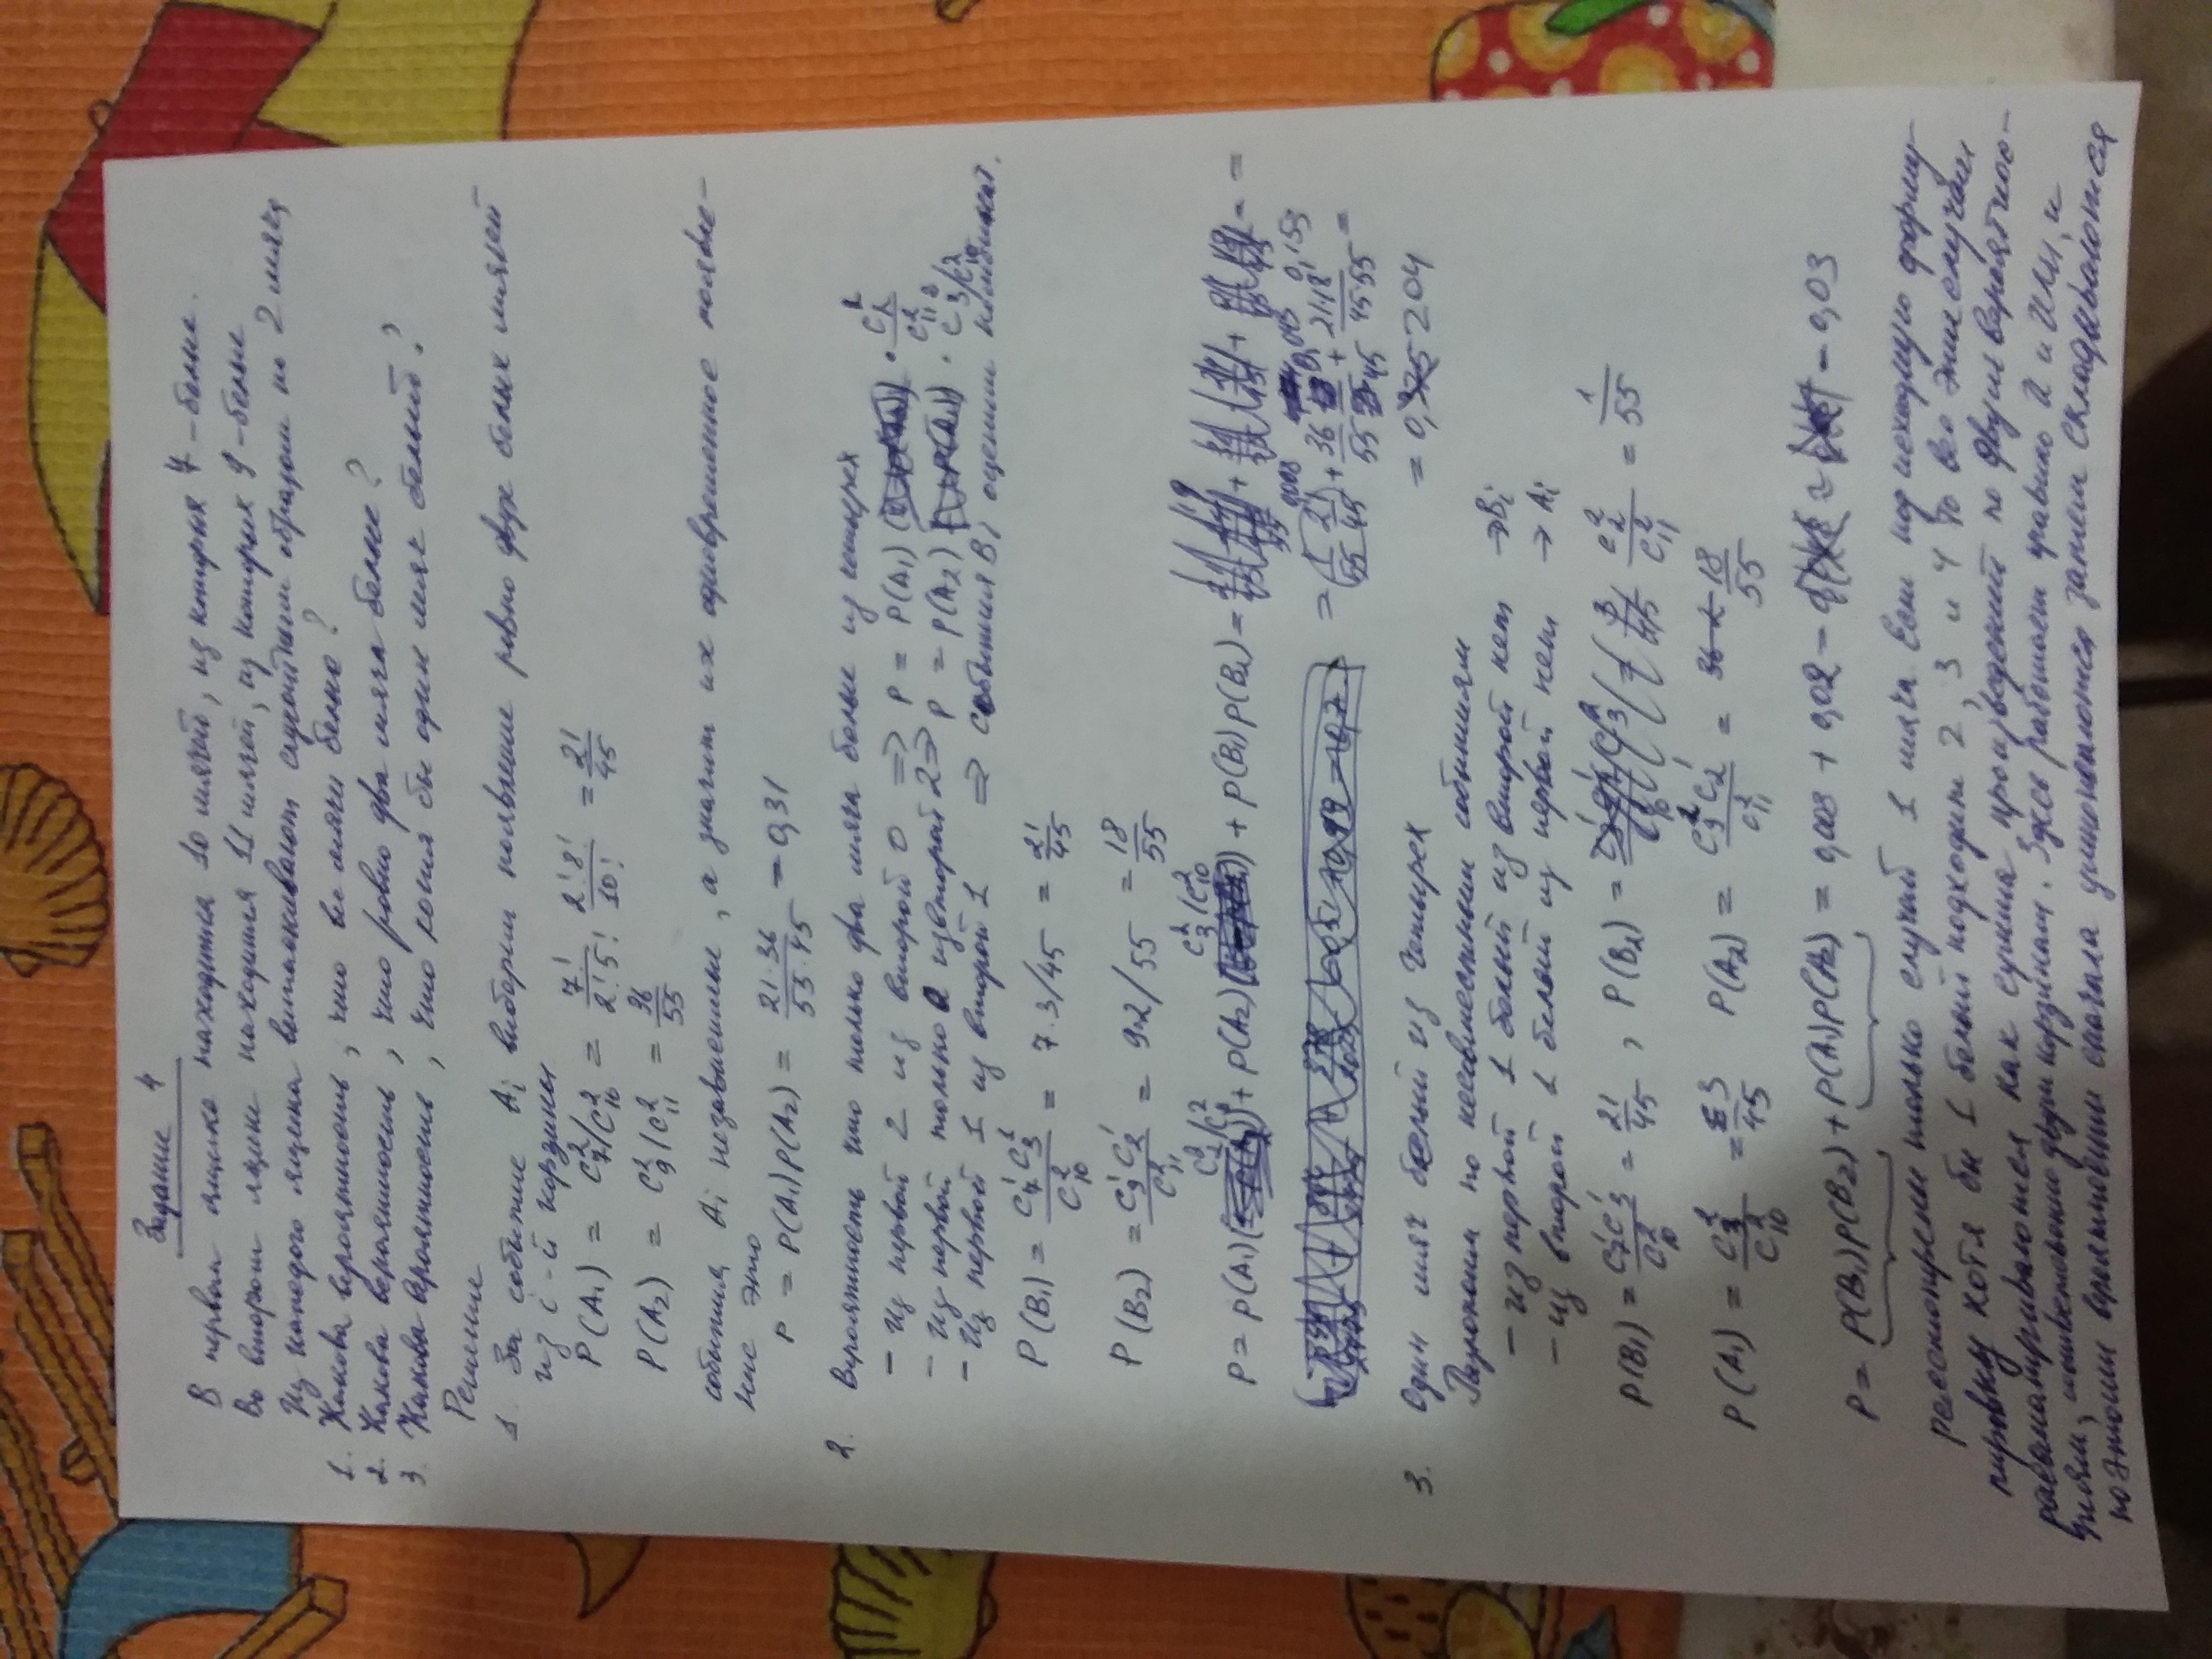 Задание 4
В первом ящике находится 10 мячей, из которых 7 - белые.
Во втором ящике находится 11 мячей, из которых 9 - белые
Из каждого ящика вытаскивают случайным образом по 2 мяча
1. Какова вероятность, что все мячи белые?
2. Какова вероятность, что ровно два мяча белые?
3. Какова вероятность, что хотя бы один мяч белый?
Решение
1. За событие Ai выберем появление ровно двух белых мячей
из i-й корзины
P(A₁) = C₇²/C₁₀² = 7!/2!5! 2!8!/10! = 21/45
P(A₂) = C₉²/C₁₁² = 36/55
события Ai независимые, а значит их одновременное появле-
ние это
P = P(A₁)P(A₂) = 21·36/55·45 = 0,31
2. Вероятность что только два мяча белые из четырех
- Из первой 2 из второй 0 => P = P(A₁) · C₂²/C₁₁²
- Из первой только 0 из второй 2 => P = P(A₂) · C₃²/C₁₀²
- Из первой 1 из второй 1 => События Bi оценим комбинат.
P(B₁) = C₇¹C₃¹/C₁₀² = 7·3/45 = 21/45
P(B₂) = C₉¹C₂¹/C₁₁² = 9·2/55 = 18/55
P = P(A₁) C₂²/C₁₁² + P(A₂) C₃²/C₁₀² + P(B₁)P(B₂) = =
0,008 0,043 0,153
= (1/55 21/45) + 36/55 3/45 + 21·18/45·55 =
= 0,204
3. Один мяч белый из четырех
Разложим по несовместным событиям
- из первой 1 белый из второй нет → Bi
- из второй 1 белый из первой нет → Ai
P(B₁) = C₇¹C₃¹/C₁₀² = 21/45, P(B₂) = C₂²/C₁₁² = 1/55
P(A₁) = C₃²/C₁₀² = 3/45 P(A₂) = C₉²C₂¹/C₁₁² = 18/55
P = P(B₁)P(B₂) + P(A₁)P(A₂) = 0,008 + 0,02 = 0,03
рассмотрены только случай 1 мяча. Если под исходную форму-
лировку хотя бы 1 белый подходит 2, 3 и 4 то все эти случаи
рассматриваются как сумма произведений по двум вероятнос-
тям, соответственно двум корзинам. Здесь работает правило И и ИЛИ, и
поэтому вероятности сначала умножаются затем складываются